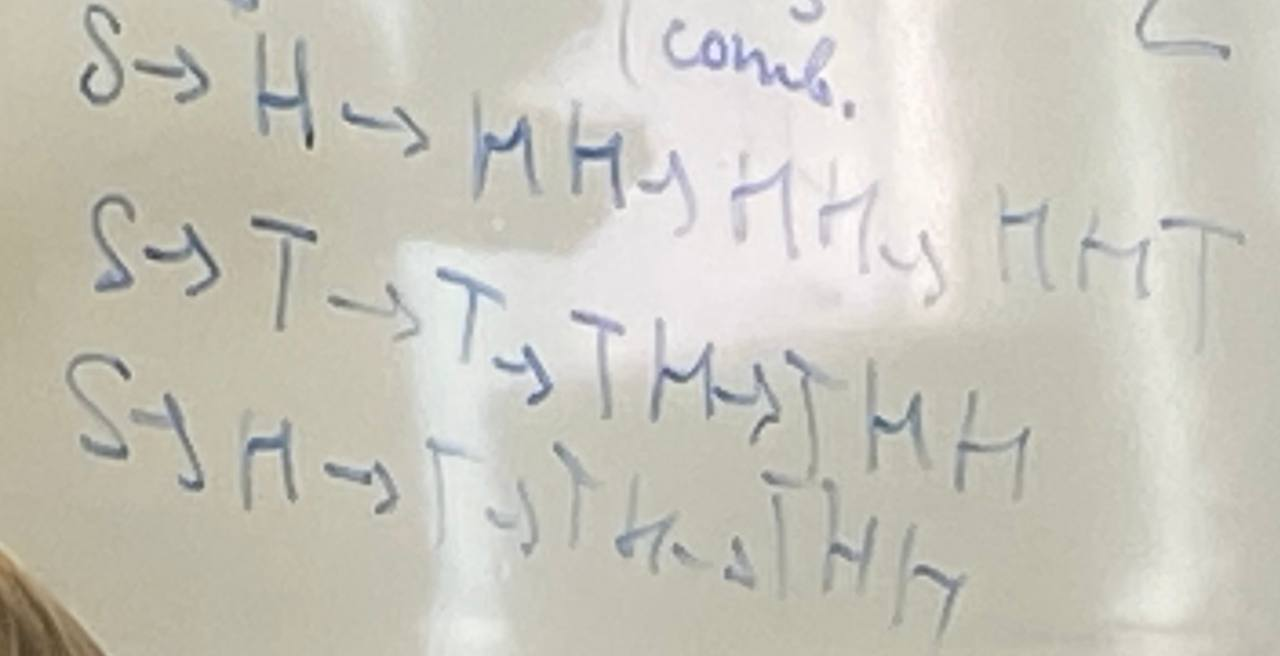 comb.
S → H → HH → HH → HHT
S → T → T → TH → THH
S → H → T → TH → THH